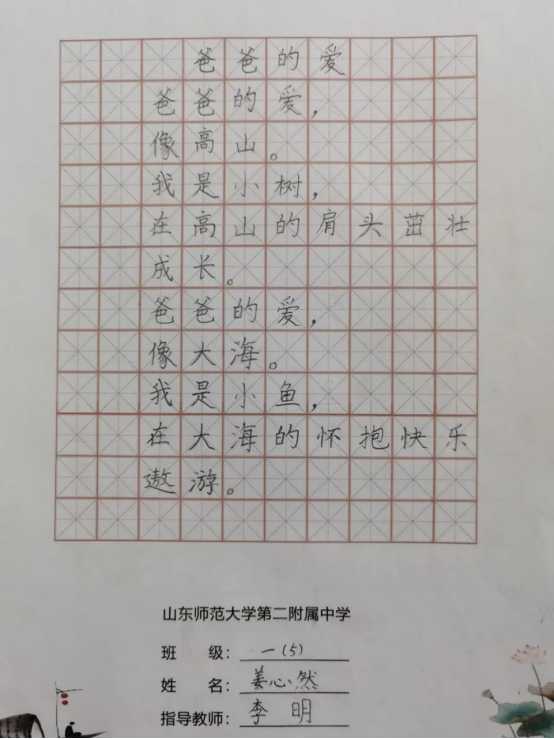 爸爸的爱
爸爸的爱，
像高山。
我是小树，
在高山的肩头茁壮
成长。
爸爸的爱，
像大海。
我是小鱼，
在大海的怀抱快乐
遨游。
山东师范大学第二附属中学
班 级：一(5)
姓 名：姜心然
指导教师：李 明